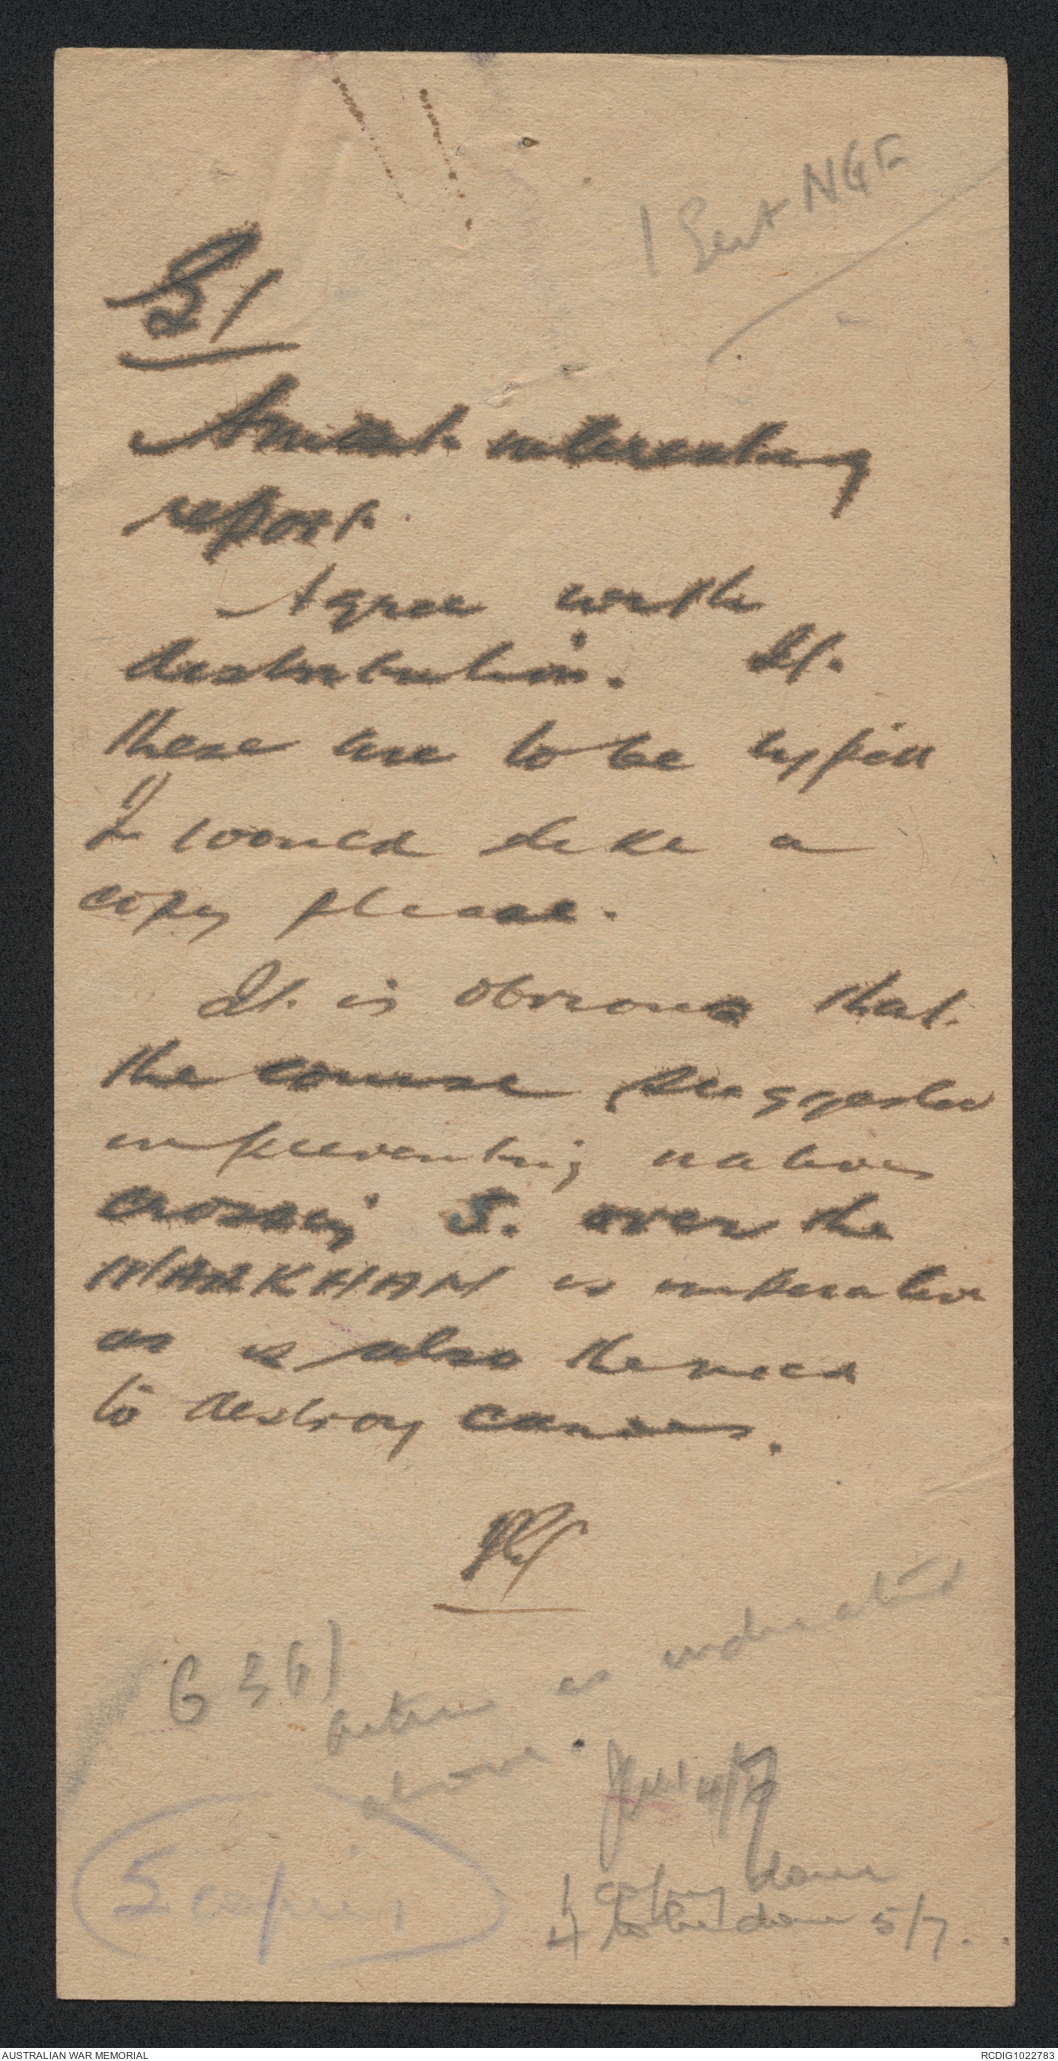 1 Sent NGF
G1
A most interesting
report.
Agree with
distribution. If
these are to be typed
I would like a
copy please.
It is obvious that
the course suggested
in preventing natives
crossing S. over the
MARKHAM is imperative
as is also the need
to destroy canoes.
G3(I)
Action as indicated
above.
4/7
5 copies
1 copy done
4 to be done 5/7..
AUSTRALIAN WAR MEMORIAL
RCDIG1022783